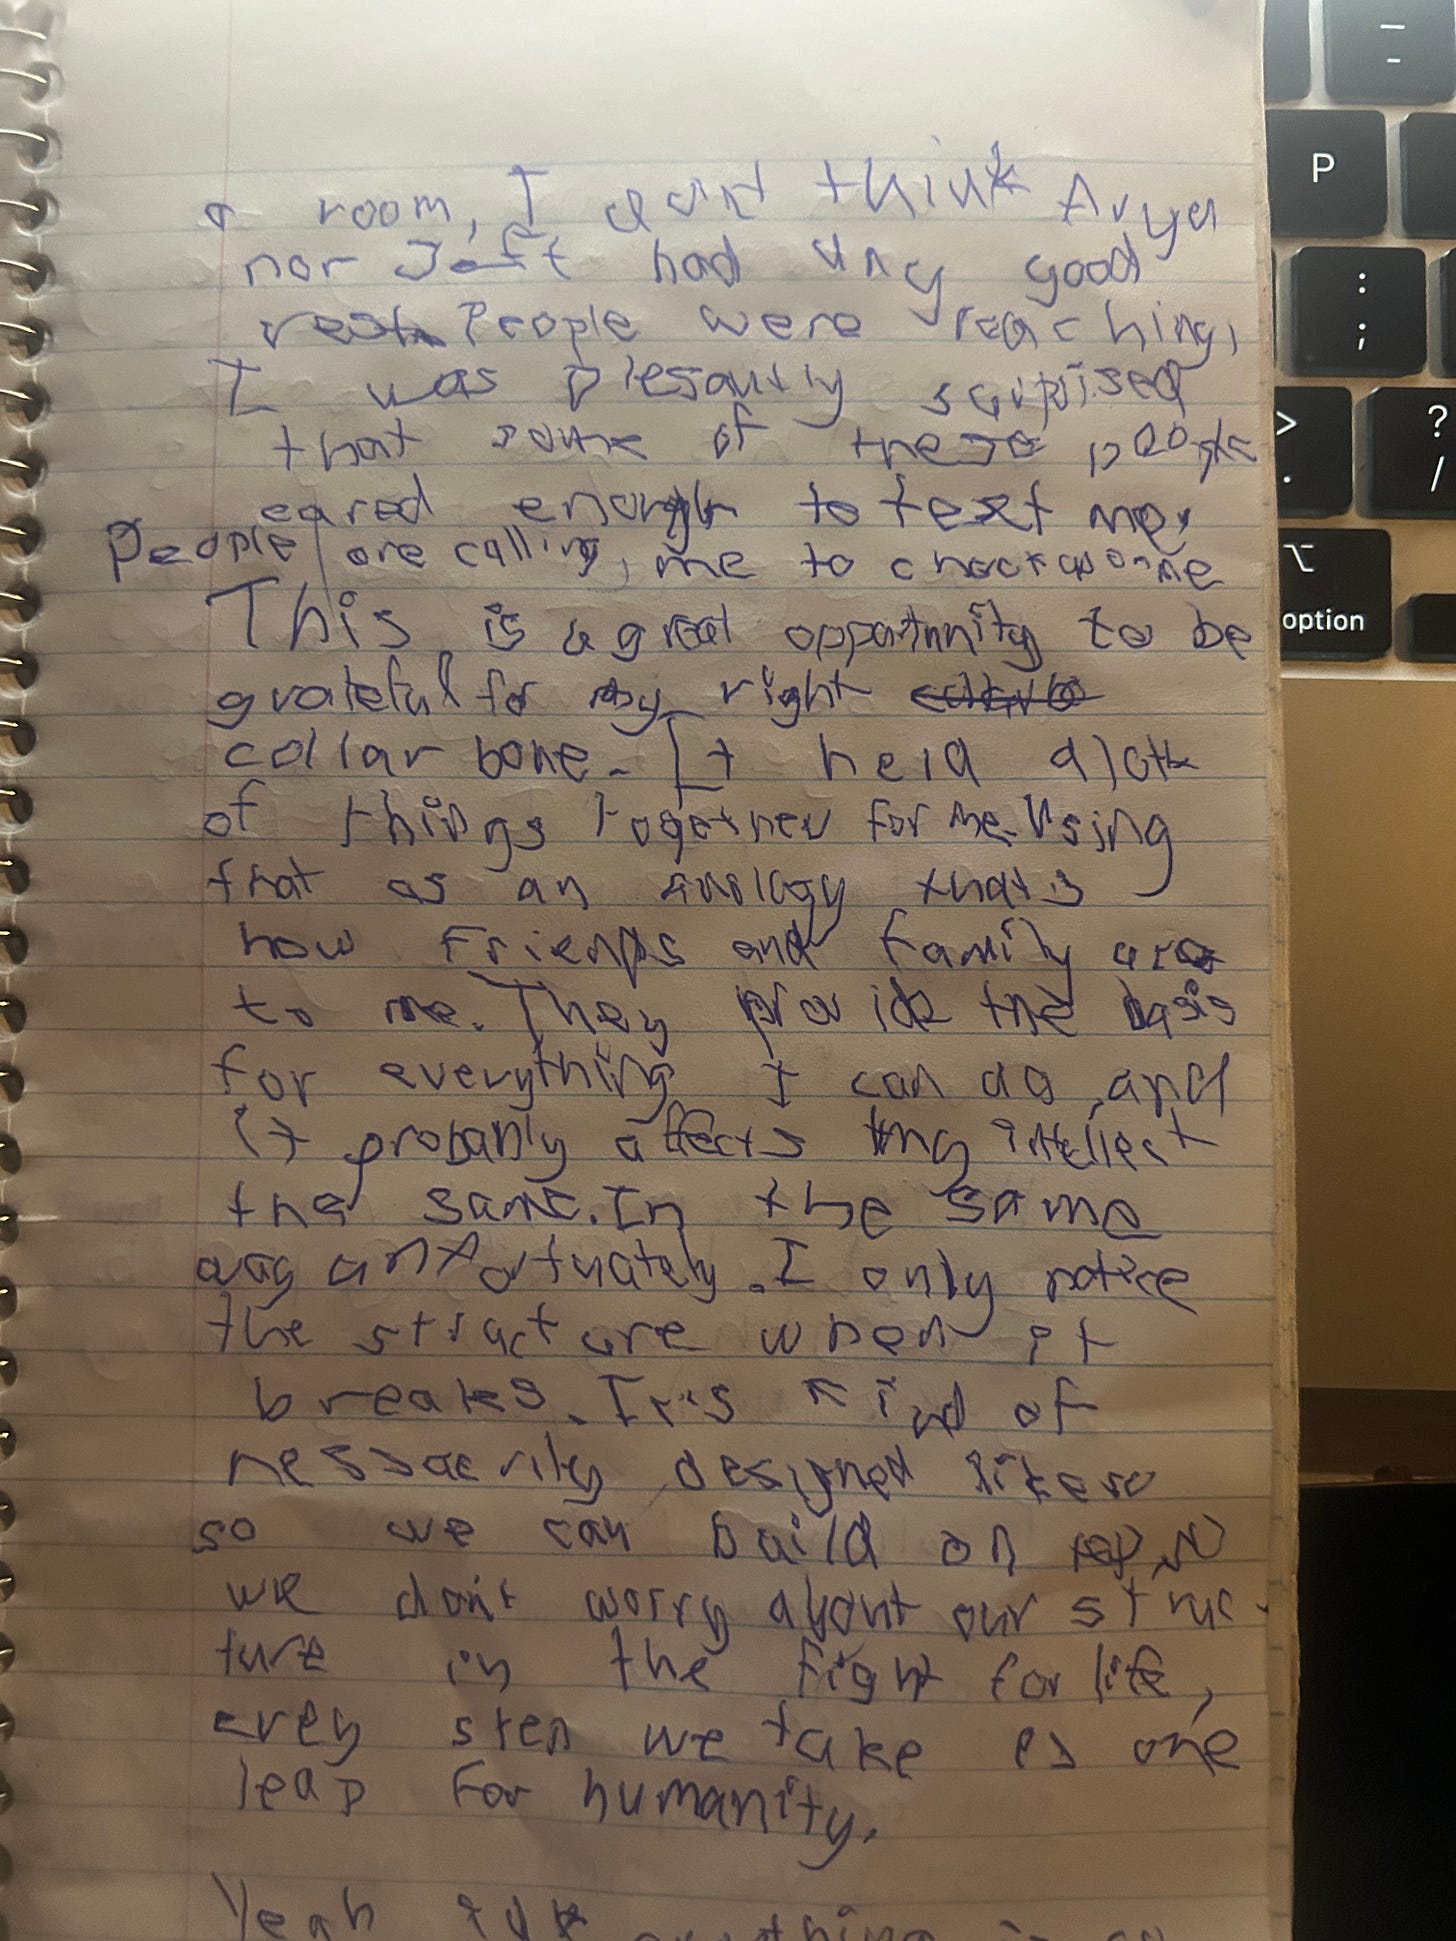 a room, I dont think Arya
nor Jeft had any good
rest People were reaching,
I was plesantly surprised
that some of these people
cared enough to text me,
People are calling, me to check up on me
This is a great opportunity to be
grateful for my right
collar bone. It held alot
of things together for me. Using
that as an anology thats
how Friends and family are
to me. They provide the basis
for everything I can do, and
it probanly affects my intellect
the same. In the same
way unfortuately. I only notice
the structure when it
breaks. It's kind of
nessacrily designed like so
so we can build on
we don't worry about our struc-
ture in the fight for life,
every step we take is one
leap for humanity.
Yeah idk